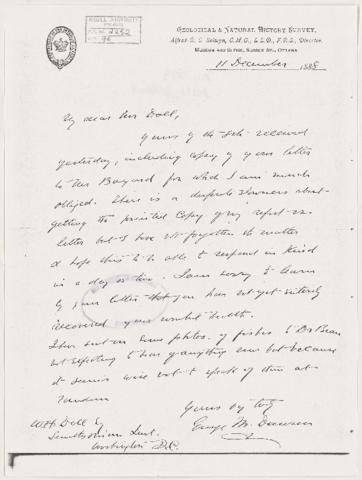 McGILL UNIVERSITY
ACC. NO. 2252
REF. 76
GEOLOGICAL & NATURAL HISTORY SURVEY.
Alfred R. C. Selwyn, C.M.G., LL.D., F.R.S., Director.
MUSEUM AND OFFICE, SUSSEX ST., OTTAWA
11 December 1888
My dear Mr Dall,
Yours of the 8th received
yesterday, including copy of your letter
to Mr Bayard for which I am much
obliged. There is a desperate slowness about
getting the printed copy of my report or
letter but I have not forgotten the matter
& hope still to be able to respond in kind
in a day or two. I am sorry to learn
by your letter that you have not yet entirely
recovered your wonted health.
I have sent on some photos. of fishes to Dr Bean
not expecting to have anything new but because
it seems well not to speak of them at
random
Yours very truly
George M. Dawson
W.H. Dall Esq
Smithsonian Inst.
Washington D.C.